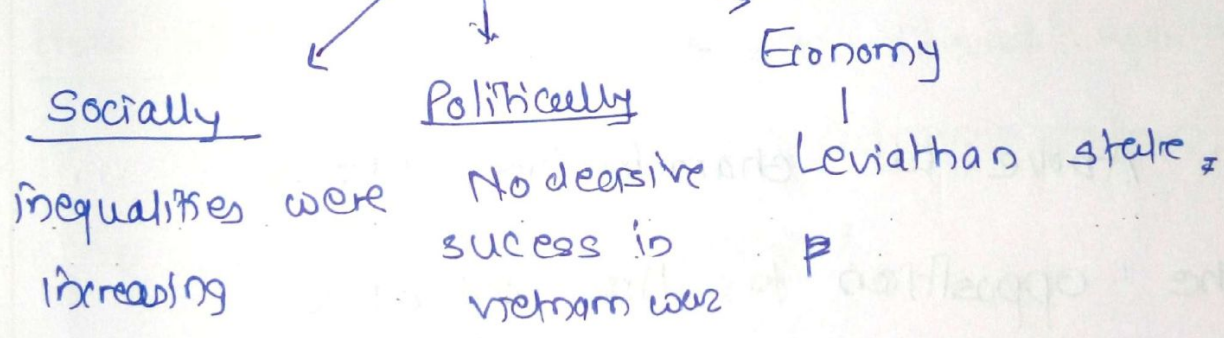 Socially
inequalities were
increasing
Politically
No decisive
sucess in
vietnam war
Economy
Leviathan state,